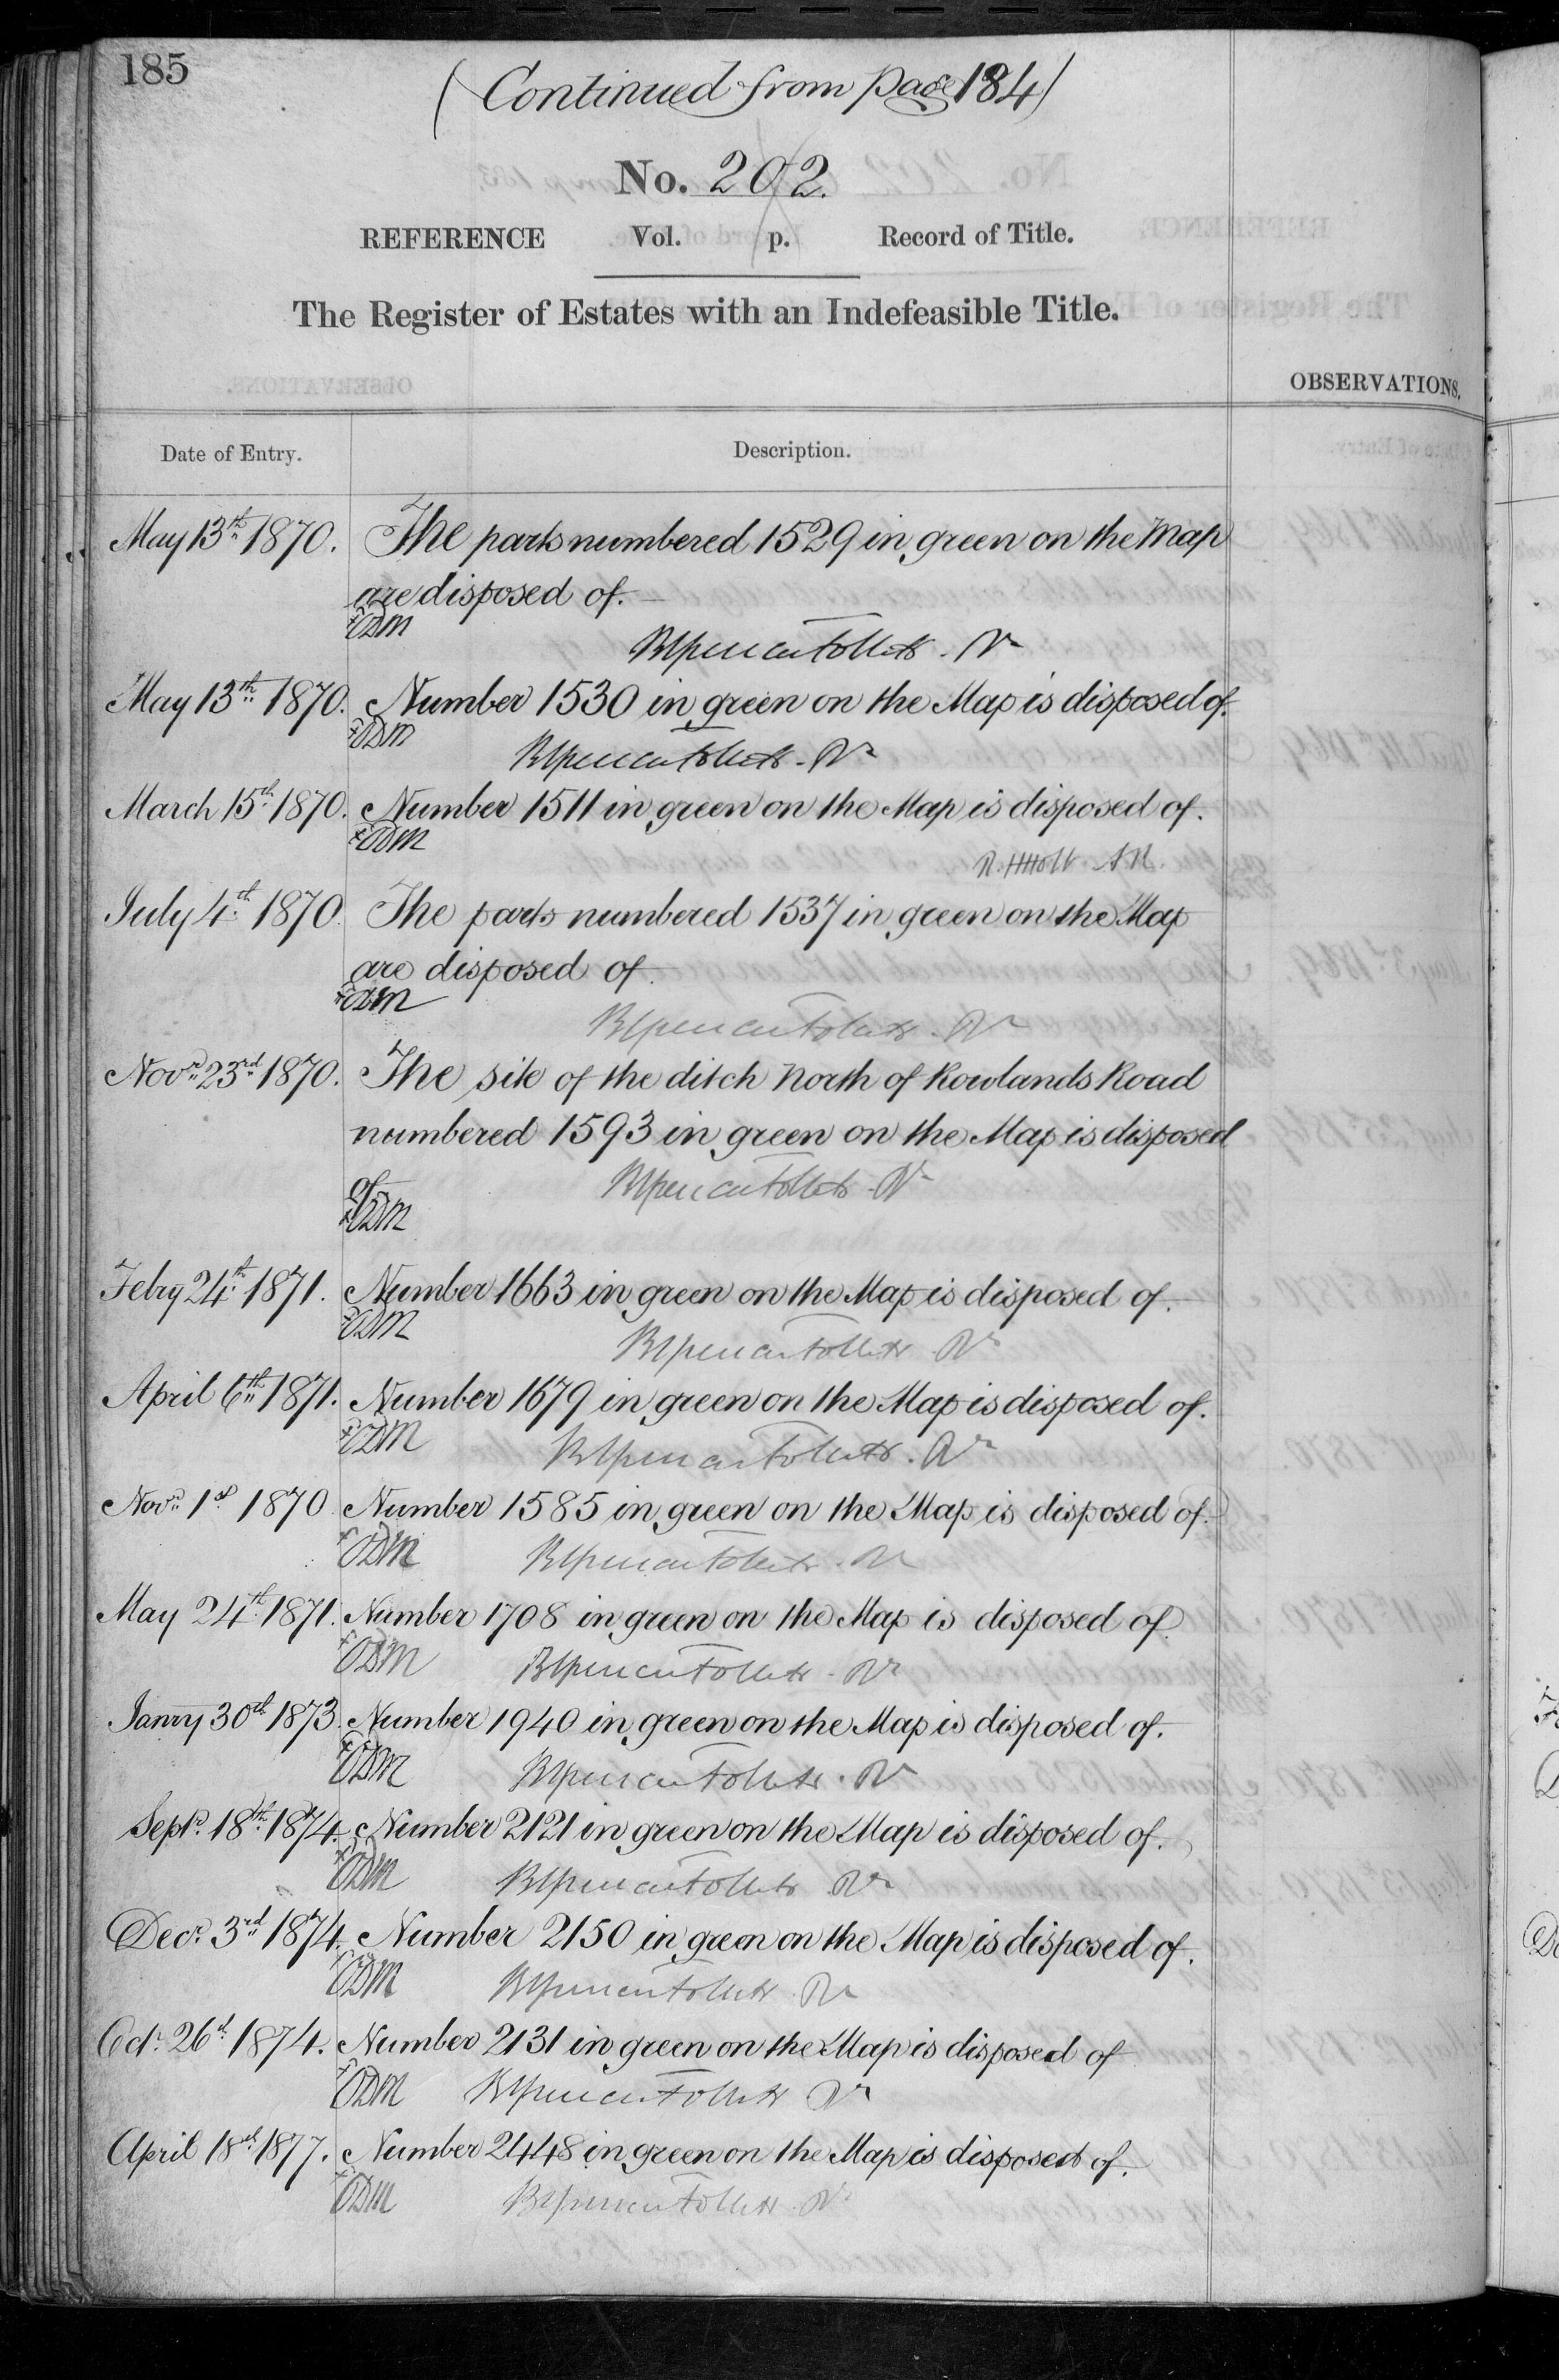 185
(Continued from page 184)
No. 202.
REFERENCE Vol. p. Record of Title.
The Register of Estates with an Indefeasible Title.
OBSERVATIONS.
Date of Entry. Description.
May 13th 1870. The parts numbered 1529 in green on the Map
are disposed of.
ODM
May 13th 1870. Number 1530 in green on the Map is disposed of.
ODM
March 15th 1870. Number 1511 in green on the Map is disposed of.
ODM
R. H Holt A.R.
July 4th 1870. The parts numbered 1537 in green on the Map
are disposed of
ODM
Novr. 23rd 1870. The site of the ditch North of Rowlands Road
numbered 1593 in green on the Map is disposed
of
ODM
Febry 24th 1871. Number 1663 in green on the Map is disposed of.
ODM
April 6th 1871. Number 1679 in green on the Map is disposed of.
ODM
Novr. 1st 1870 Number 1585 in green on the Map is disposed of.
ODM
May 24th 1871. Number 1708 in green on the Map is disposed of
ODM
Janry 30th 1873. Number 1940 in green on the Map is disposed of.
ODM
Septr. 18th 1874. Number 2121 in green on the Map is disposed of.
ODM
Decr. 3rd 1874. Number 2150 in green on the Map is disposed of.
ODM
Octr. 26th 1874. Number 2131 in green on the Map is disposed of
ODM
April 18th 1877. Number 2448 in green on the Map is disposed of.
ODM